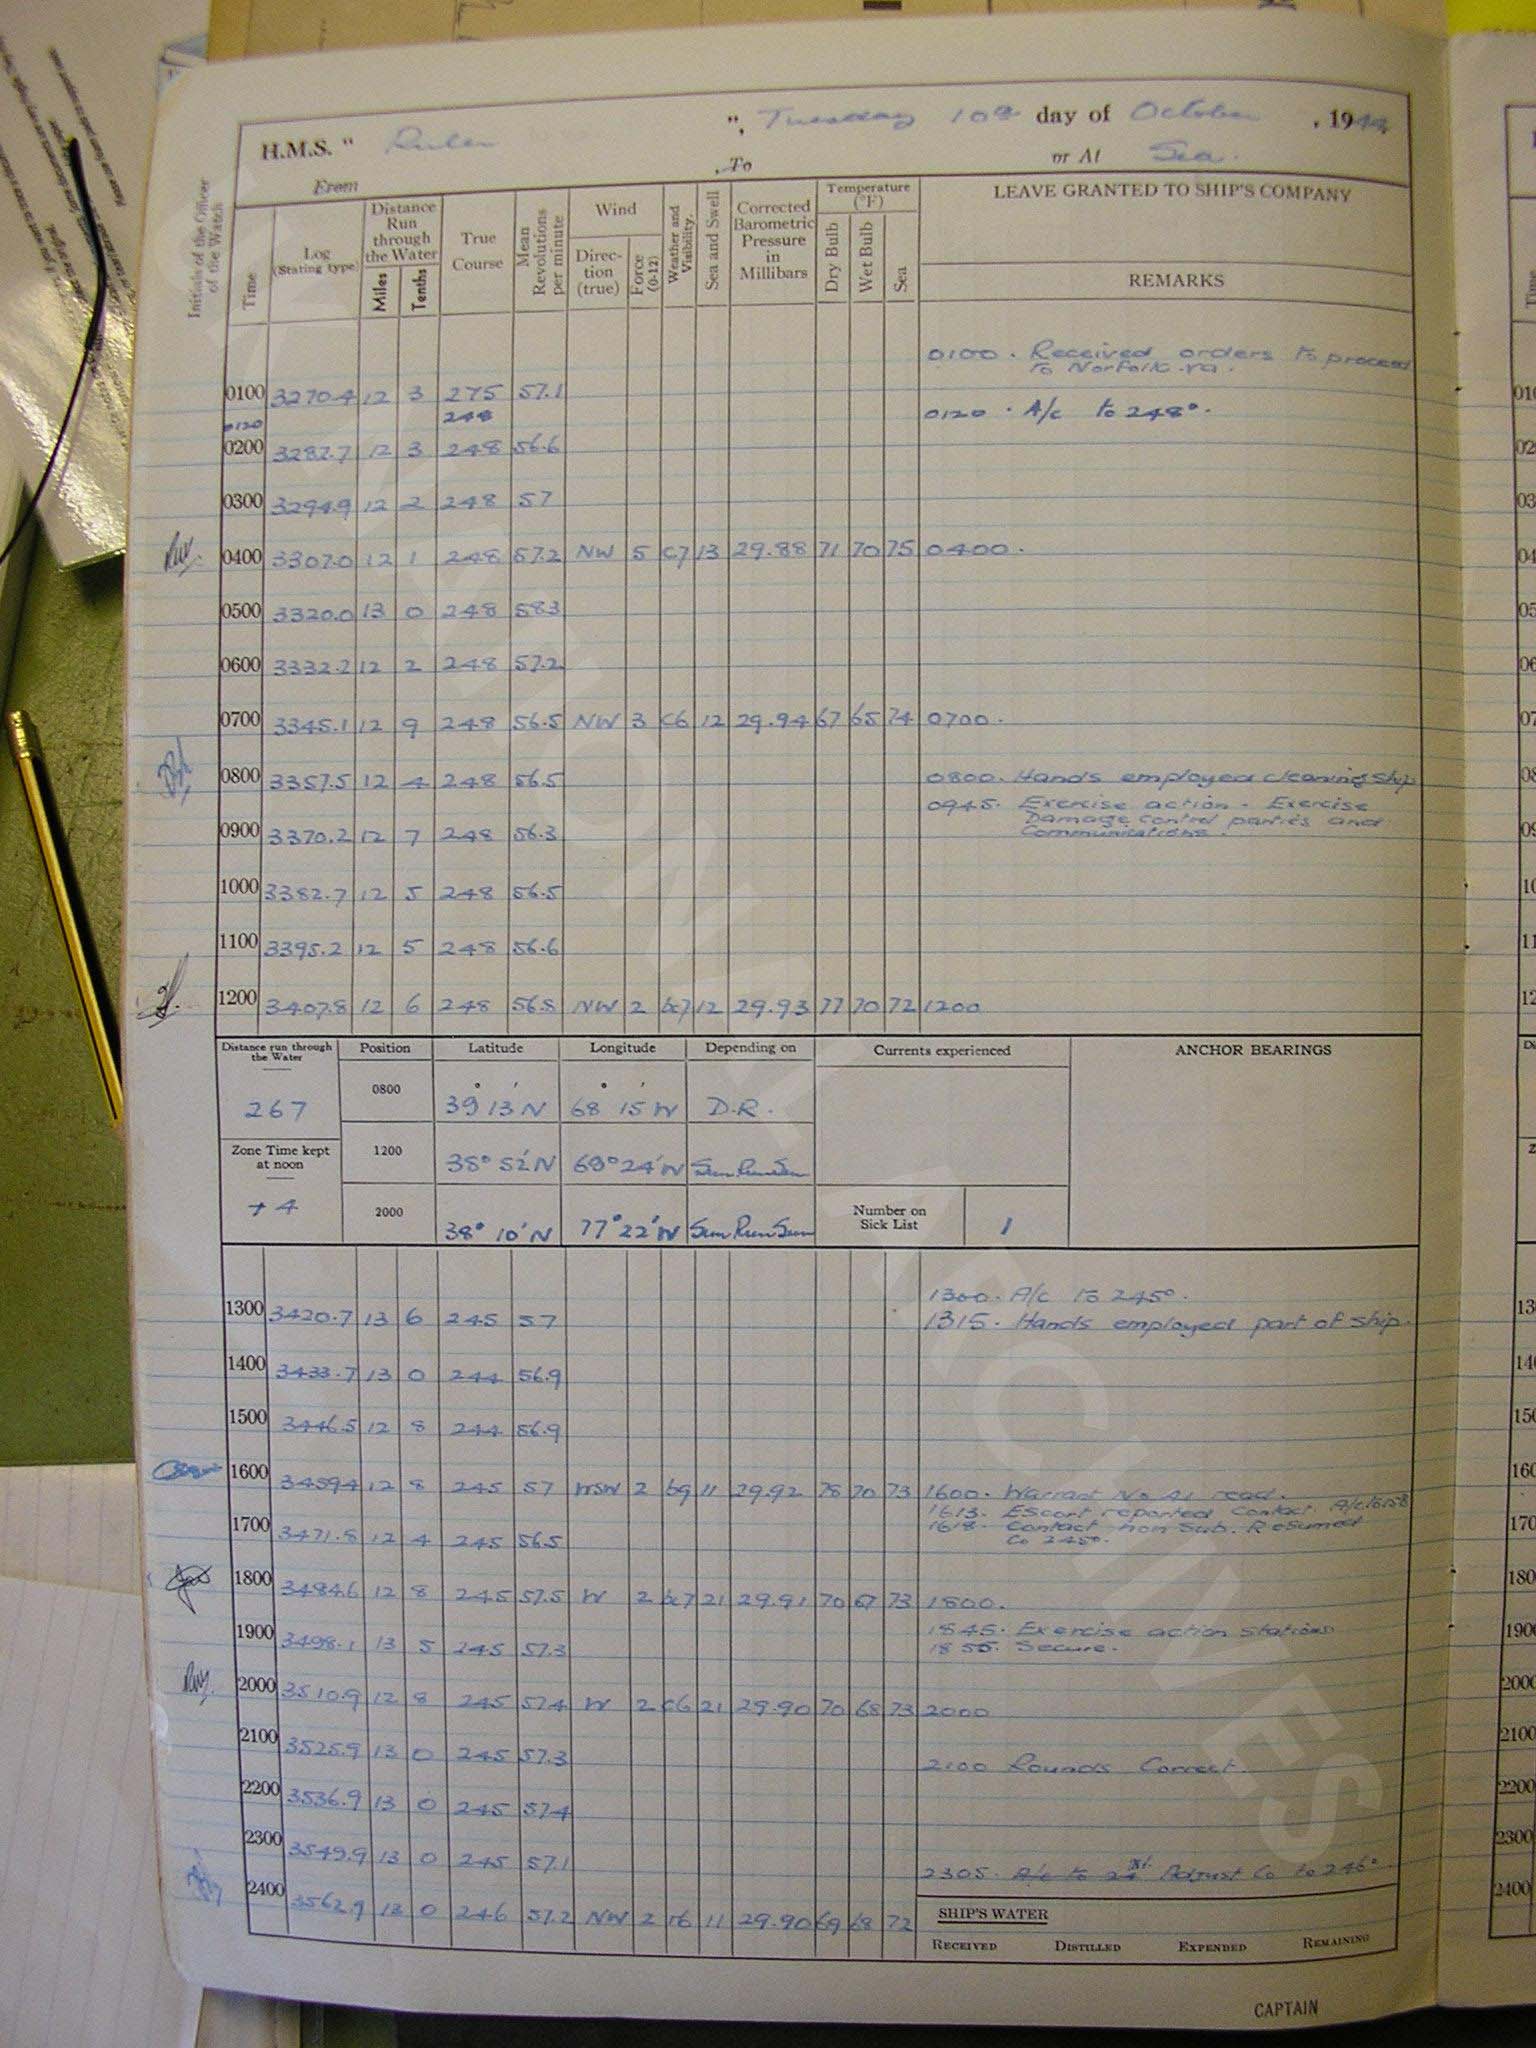 H.M.S. " Ruler ", Tuesday 10th day of October, 1944
From , To or At Sea.
Initials of the Officer of the Watch
Time
Log (Stating type)
Distance Run through the Water
Miles
Tenths
True Course
Mean Revolutions per minute
Wind
Direction (true)
Force (0-12)
Weather and Visibility.
Sea and Swell
Corrected Barometric Pressure in Millibars
Temperature (°F)
Dry Bulb
Wet Bulb
Sea
LEAVE GRANTED TO SHIP'S COMPANY
REMARKS
0100 . Received orders to proceed
to Norfolk va.
0100 3270.4 12 3 275 57.1
0120 248 0120 . A/c to 248°.
0200 3282.7 12 3 248 56.6
0300 3294.9 12 2 248 57
0400 3307.0 12 1 248 57.2 NW 5 c7 13 29.88 71 70 75 0400 .
0500 3320.0 13 0 248 583
0600 3332.2 12 2 248 57.2
0700 3345.1 12 9 248 56.5 NW 3 c6 12 29.94 67 65 74 0700 .
0800 3357.5 12 4 248 56.5 0800. Hands employed cleaning ship
0945. Exercise action - Exercise
Damage control parties and
Communications.
0900 3370.2 12 7 248 56.3
1000 3382.7 12 5 248 56.5
1100 3395.2 12 5 248 56.6
1200 3407.8 12 6 248 56.8 NW 2 bc7 12 29.93 77 70 72 1200
Distance run through the Water
267
Zone Time kept at noon
+ 4
Position Latitude Longitude Depending on Currents experienced ANCHOR BEARINGS
0800 39° 13' N 68° 15' W D.R.
1200 38° 52' N 69° 24' W Sun Run Sun
2000 38° 10' N 77° 22' W Sun Run Sun
Number on Sick List 1
1300. A/c to 245°.
1300 3420.7 13 6 245 57 1315. Hands employed part of ship.
1400 3433.7 13 0 244 56.9
1500 3446.5 12 8 244 56.9
1600 34594 12 8 245 57 WSW 2 b9 11 29.92 78 70 73 1600. Warrant No 21 read.
1613. Escort reported contact
1618. Contact non Sub. Resumed
Co 245°.
1700 3471.8 12 4 245 56.5
1800 3484.6 12 8 245 57.5 W 2 bc7 21 29.91 70 67 73 1800.
1845. Exercise action stations
1900 3498.1 13 5 245 57.3 1855. Secure.
2000 3510.9 12 8 245 57.4 W 2 c6 21 29.90 70 68 73 2000
2100 3523.9 13 0 245 57.3 2100 Rounds Correct.
2200 3536.9 13 0 245 57.4
2300 3549.9 13 0 245 57.1
2305. A/c to 24 Adjust Co to 246°
2400 3562.9 13 0 246 57.2 NW 2 r6 11 29.90 69 68 72
SHIP'S WATER
RECEIVED DISTILLED EXPENDED REMAINING
CAPTAIN
NATIONAL ARCHIVES